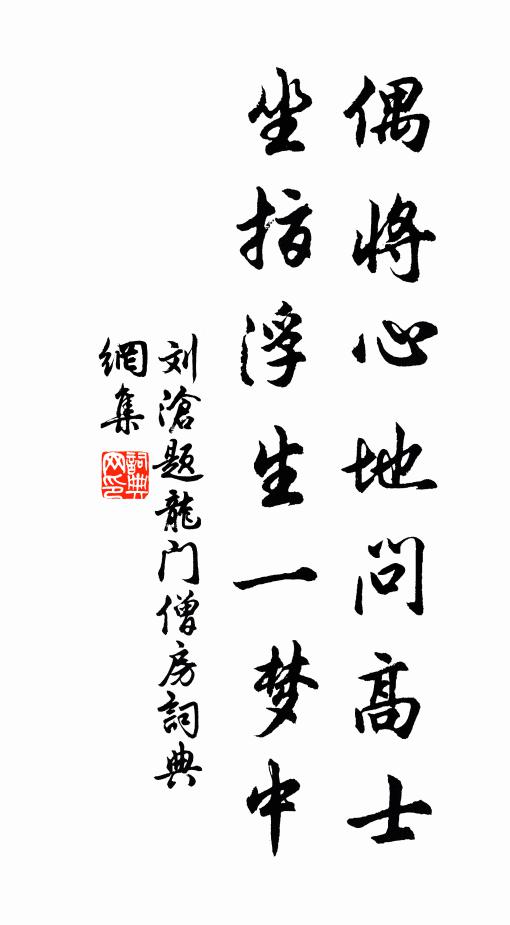 偶将心地问高士
坐指浮生一梦中
刘滄题龍门僧房詞典
網集
詞典
网印